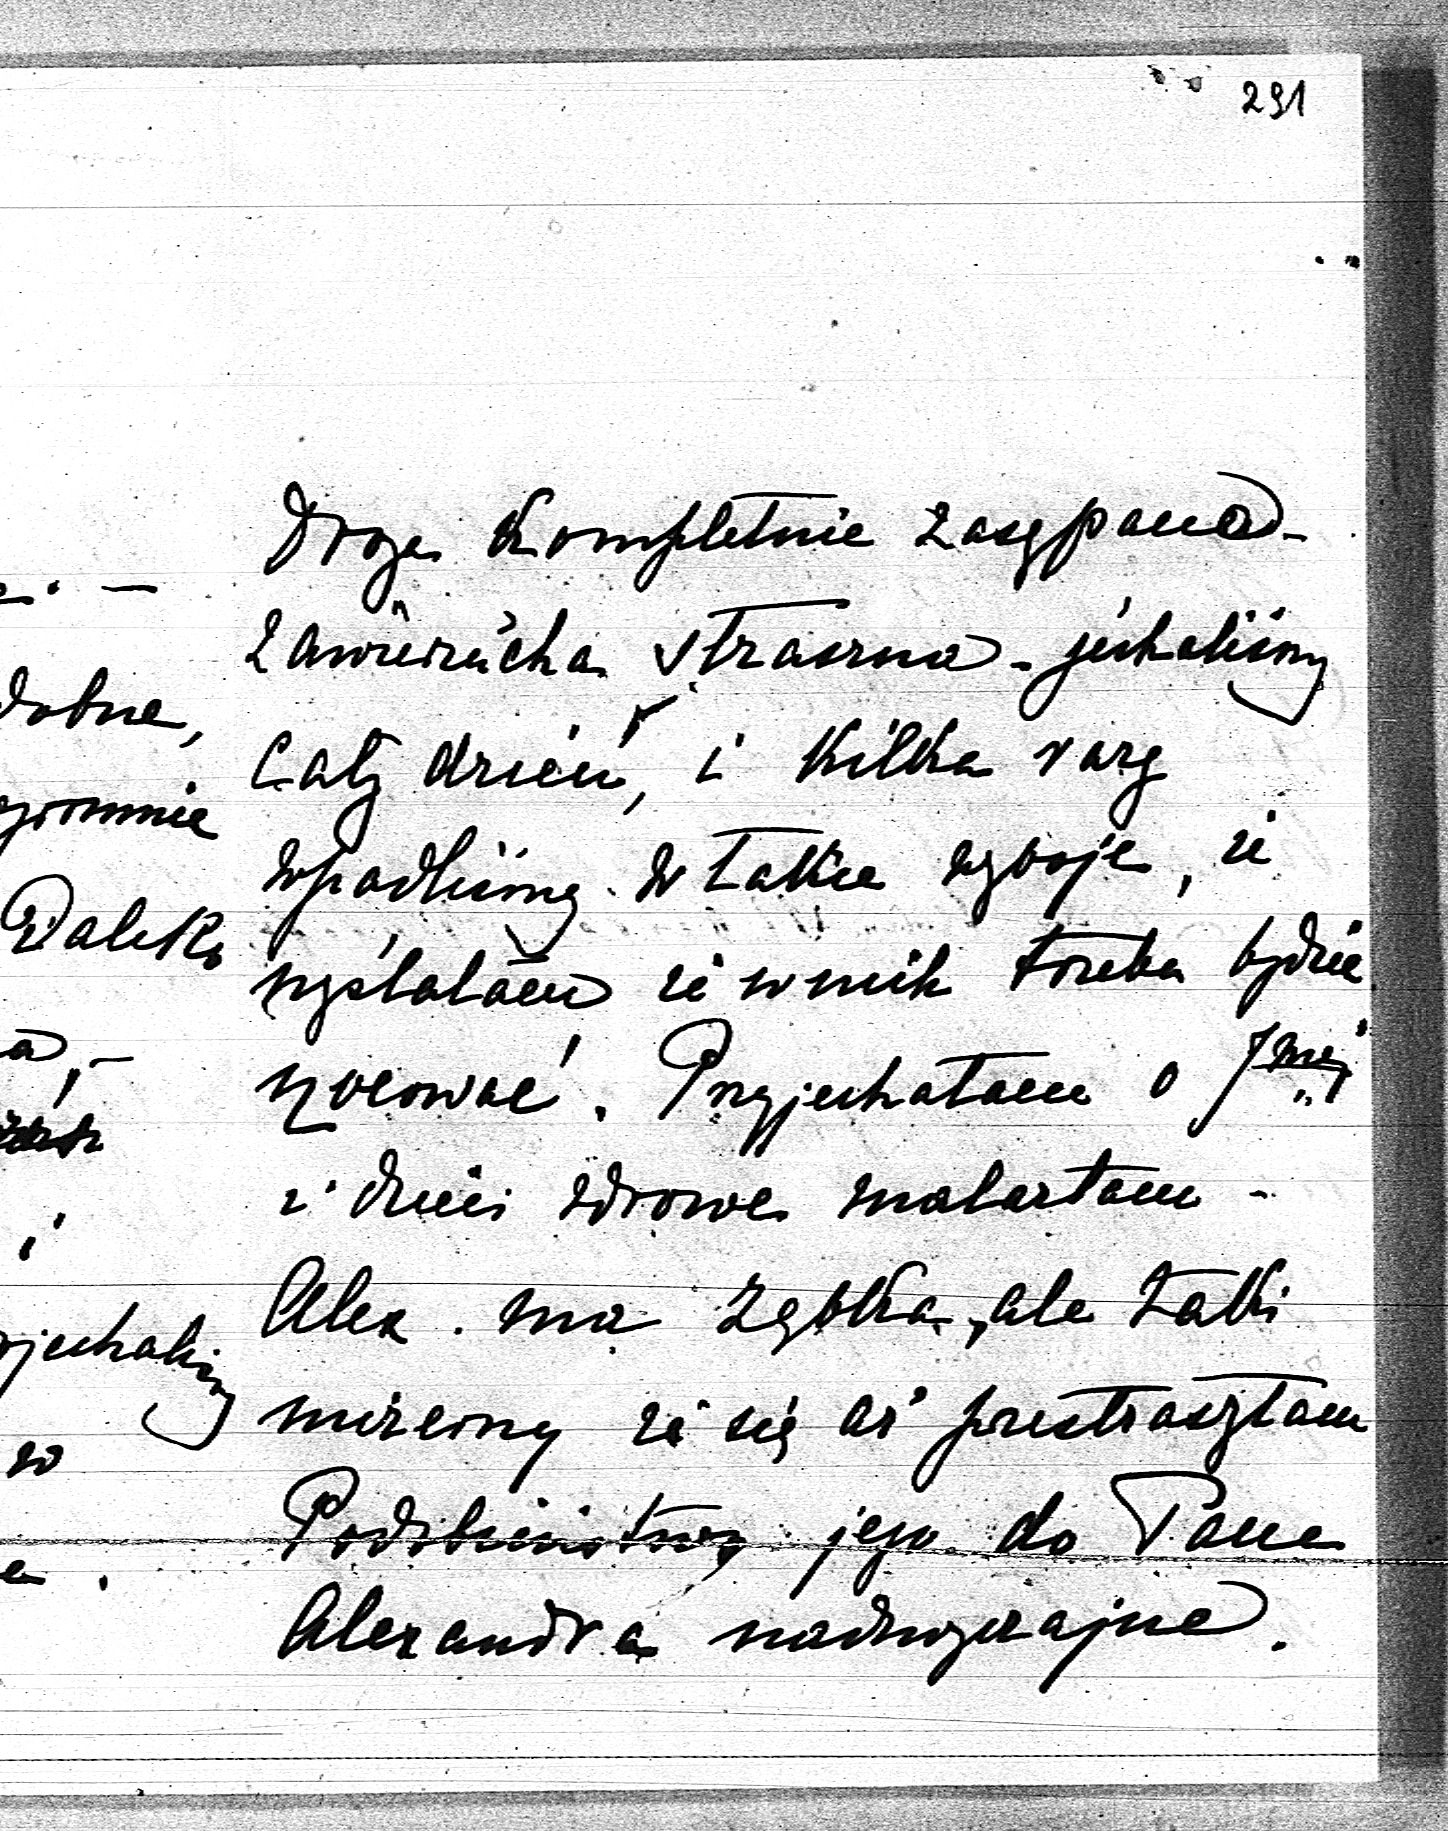 291
Droga kompletnie zasypana -
zawierucha straszna - jechaliśmy
cały dzień, i kilka razy
wpadliśmy w takie wyboje, że
myślałam że w nich trzeba będzie
nocować. Przyjechałam o 7mej
i dzieci zdrowe znalazłam -
Alex. ma ząbka, ale taki
mizerny że się aż przestraszyłam
Podobieństwo jego do Pana
Alexandra nadzwyczajne.
dobne,
Daleko
jechaliśmy
w